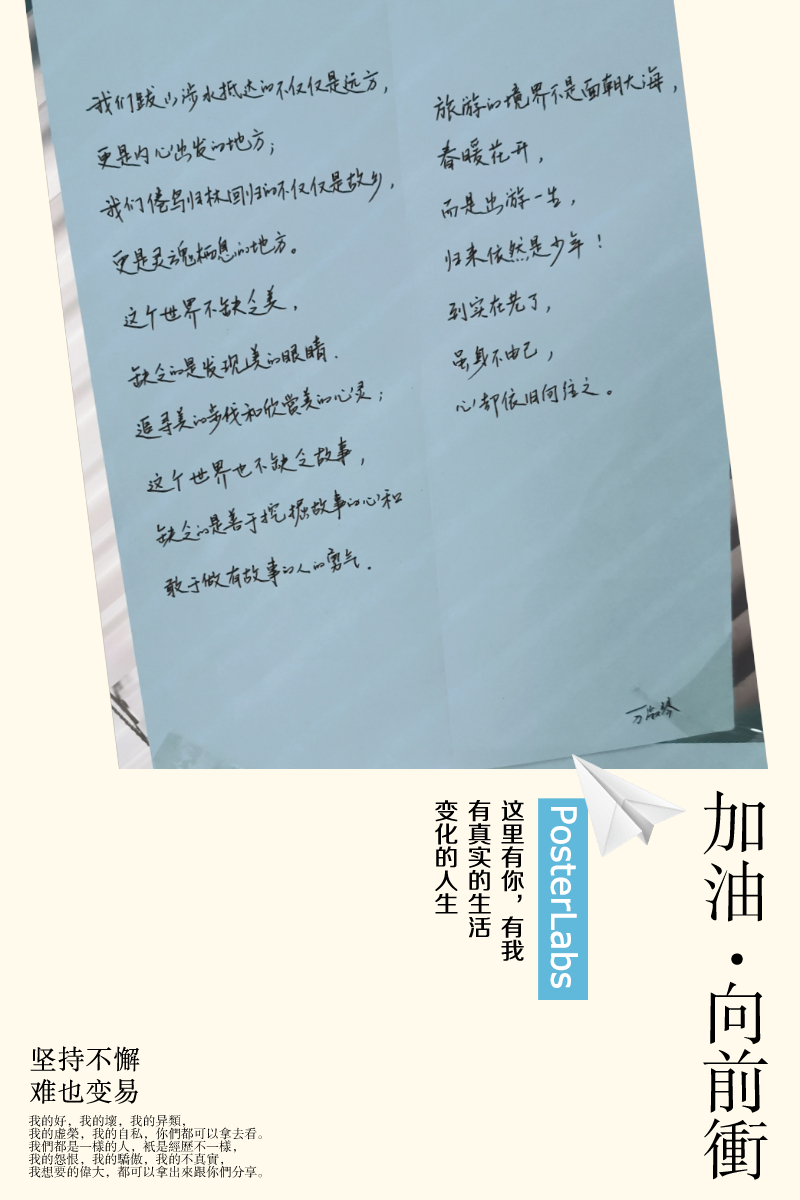 我们跋山涉水抵达的不仅仅是远方，
更是内心出发的地方；
我们倦鸟归林回归的不仅仅是故乡，
更是灵魂栖息的地方。
这个世界不缺乏美，
缺乏的是发现美的眼睛．
追寻美的步伐和欣赏美的心灵；
这个世界也不缺乏故事，
缺乏的是善于挖掘故事的心和
敢于做有故事的人的勇气．
旅游的境界不是面朝大海，
春暖花开，
而是出游一生，
归来依然是少年！
到实在老了，
虽身不由己，
心却依旧向往之。
加油·向前衝
PosterLabs
这里有你，有我
有真实的生活
变化的人生
坚持不懈
难也变易
我的好，我的壞，我的异類，
我的虛榮，我的自私，你們都可以拿去看。
我們都是一樣的人，衹是經歷不一樣，
我的怨恨，我的驕傲，我的不真實，
我想要的偉大，都可以拿出來跟你們分享。